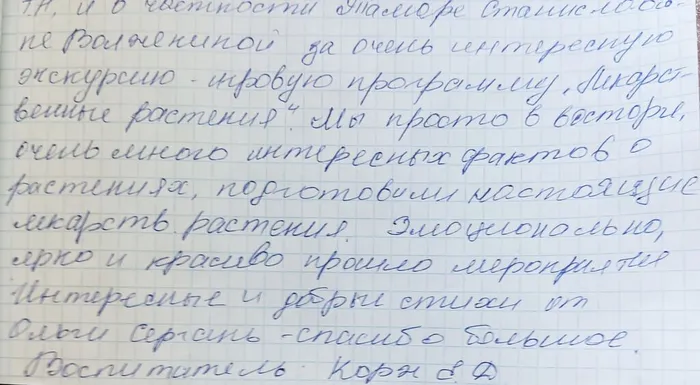 Т.Н. и в частности Тамаре Станиславов-
не Волжениной за очень интересную
экскурсию - игровую программу „Лекарст-
венные растения". Мы просто в восторге,
очень много интересных фактов о
растениях, подготовили настоящие
лекарств. растения. Эмоционально,
ярко и красиво прошло мероприятие
Интересные и добрые стихи от
Ольги Сергань - спасибо большое.
Воспитатель Корж Е.Д